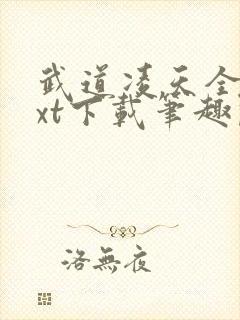 武道凌天全
xt下載筆趣
洛無夜